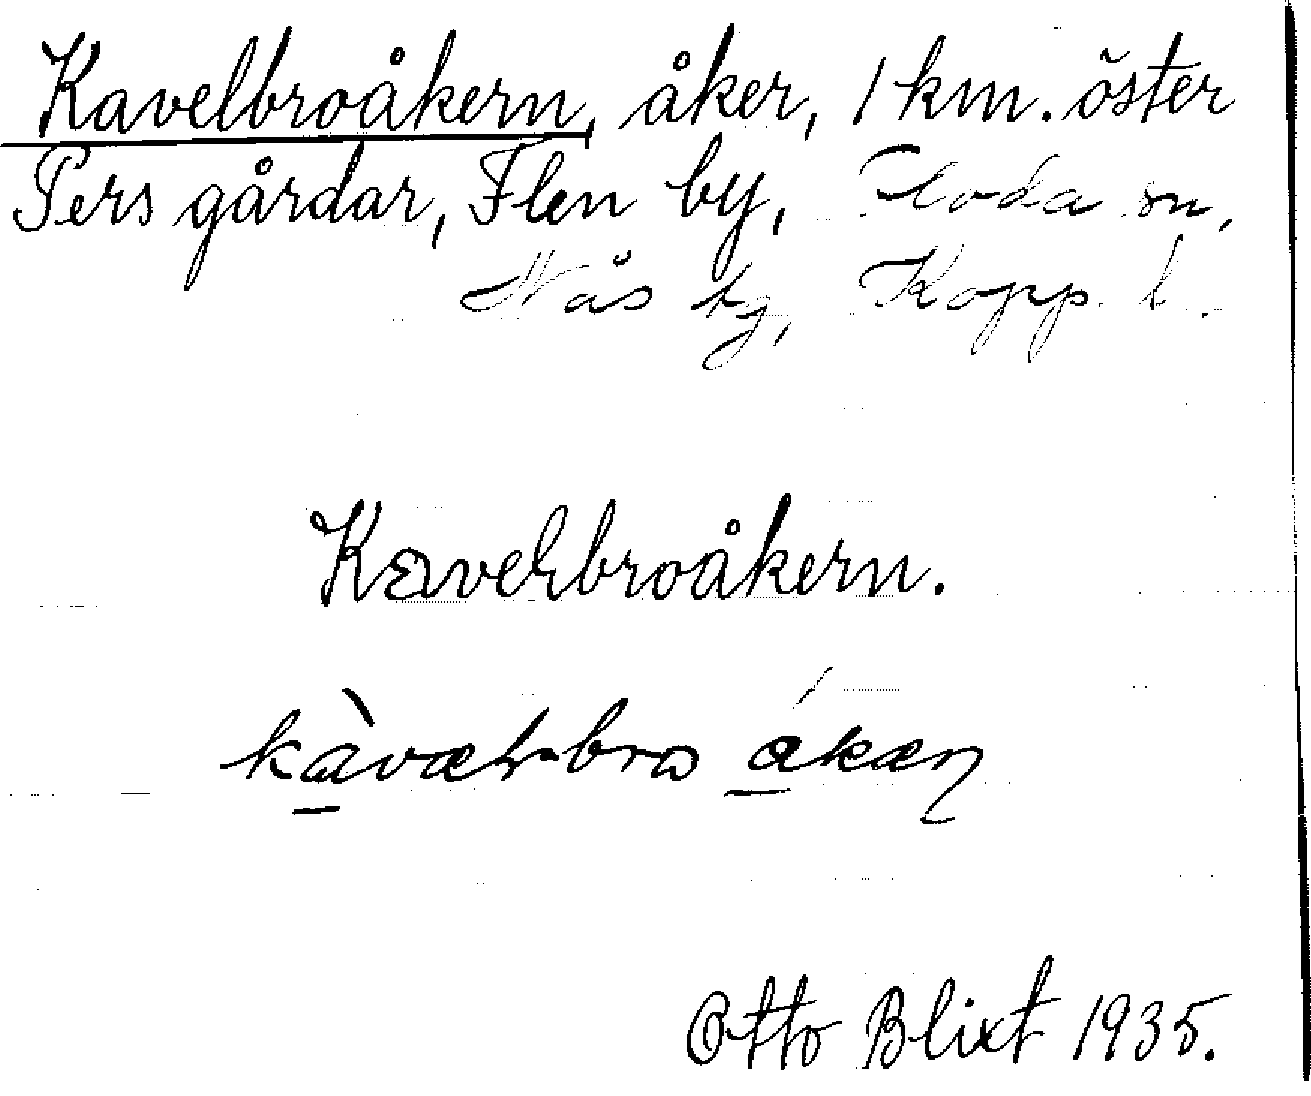 Kavelbroåkern, åker, 1 km. öster
Pers gårdar, Flen by, Floda sn,
Nås tg, Kopp. l.
Kavelbroåkern.
kàvæƚbro ákæɳ
Otto Blixt 1935.